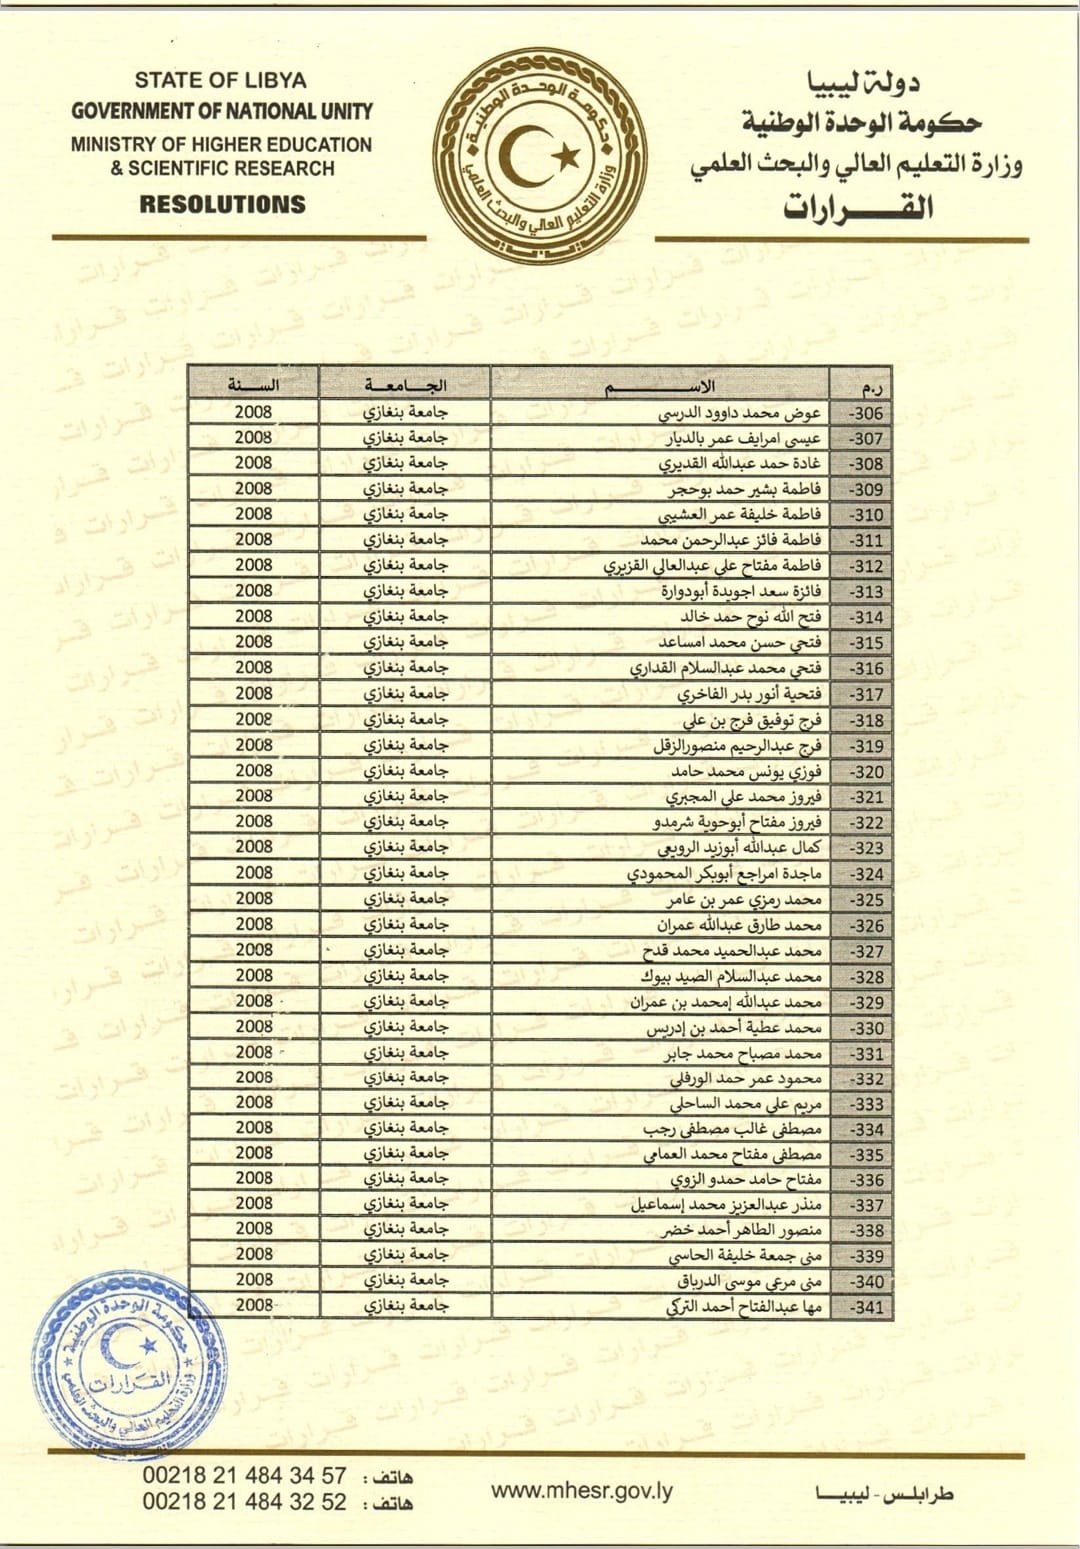 STATE OF LIBYA
GOVERNMENT OF NATIONAL UNITY
MINISTRY OF HIGHER EDUCATION
& SCIENTIFIC RESEARCH
RESOLUTIONS
حكومة الوحدة الوطنية
وزارة التعليم العالي والبحث العلمي
دولة ليبيا
حكومة الوحدة الوطنية
وزارة التعليم العالي والبحث العلمي
القـــرارات
ر.م الاســـــــم الجــامعــة الســنة
306- عوض محمد داوود الدرسي جامعة بنغازي 2008
307- عيسى امرايف عمر بالديار جامعة بنغازي 2008
308- غادة حمد عبدالله القديري جامعة بنغازي 2008
309- فاطمة بشير حمد بوحجر جامعة بنغازي 2008
310- فاطمة خليفة عمر العشيبي جامعة بنغازي 2008
311- فاطمة فائز عبدالرحمن محمد جامعة بنغازي 2008
312- فاطمة مفتاح علي عبدالعالي القزيري جامعة بنغازي 2008
313- فائزة سعد اجويدة أبودوارة جامعة بنغازي 2008
314- فتح الله نوح حمد خالد جامعة بنغازي 2008
315- فتحي حسن محمد امساعد جامعة بنغازي 2008
316- فتحي محمد عبدالسلام القداري جامعة بنغازي 2008
317- فتحية أنور بدر الفاخري جامعة بنغازي 2008
318- فرج توفيق فرج بن علي جامعة بنغازي 2008
319- فرج عبدالرحيم منصورالزقل جامعة بنغازي 2008
320- فوزي يونس محمد حامد جامعة بنغازي 2008
321- فيروز محمد علي المجبري جامعة بنغازي 2008
322- فيروز مفتاح أبوحوية شرمدو جامعة بنغازي 2008
323- كمال عبدالله أبوزيد الرويعي جامعة بنغازي 2008
324- ماجدة امراجع أبوبكر المحمودي جامعة بنغازي 2008
325- محمد رمزي عمر بن عامر جامعة بنغازي 2008
326- محمد طارق عبدالله عمران جامعة بنغازي 2008
327- محمد عبدالحميد محمد قدح جامعة بنغازي 2008
328- محمد عبدالسلام الصيد بيوك جامعة بنغازي 2008
329- محمد عبدالله إمحمد بن عمران جامعة بنغازي 2008
330- محمد عطية أحمد بن إدريس جامعة بنغازي 2008
331- محمد مصباح محمد جابر جامعة بنغازي 2008
332- محمود عمر حمد الورفلي جامعة بنغازي 2008
333- مريم علي محمد الساحلي جامعة بنغازي 2008
334- مصطفى غالب مصطفى رجب جامعة بنغازي 2008
335- مصطفى مفتاح محمد العمامي جامعة بنغازي 2008
336- مفتاح حامد حمدو الزوي جامعة بنغازي 2008
337- منذر عبدالعزيز محمد إسماعيل جامعة بنغازي 2008
338- منصور الطاهر أحمد خضر جامعة بنغازي 2008
339- منى جمعة خليفة الحاسي جامعة بنغازي 2008
340- منى مرعي موسى الدرباق جامعة بنغازي 2008
341- مها عبدالفتاح أحمد التركي جامعة بنغازي 2008
حكومة الوحدة الوطنية
القرارات
وزارة التعليم العالي والبحث العلمي
هاتف : 00218 21 484 34 57
هاتف : 00218 21 484 32 52
www.mhesr.gov.ly
طرابلـس - ليبيـــا